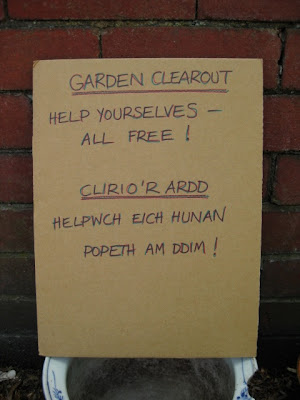 GARDEN CLEAROUT
HELP YOURSELVES –
ALL FREE !
CLIRIO'R ARDD
HELPWCH EICH HUNAN
POPETH AM DDIM !